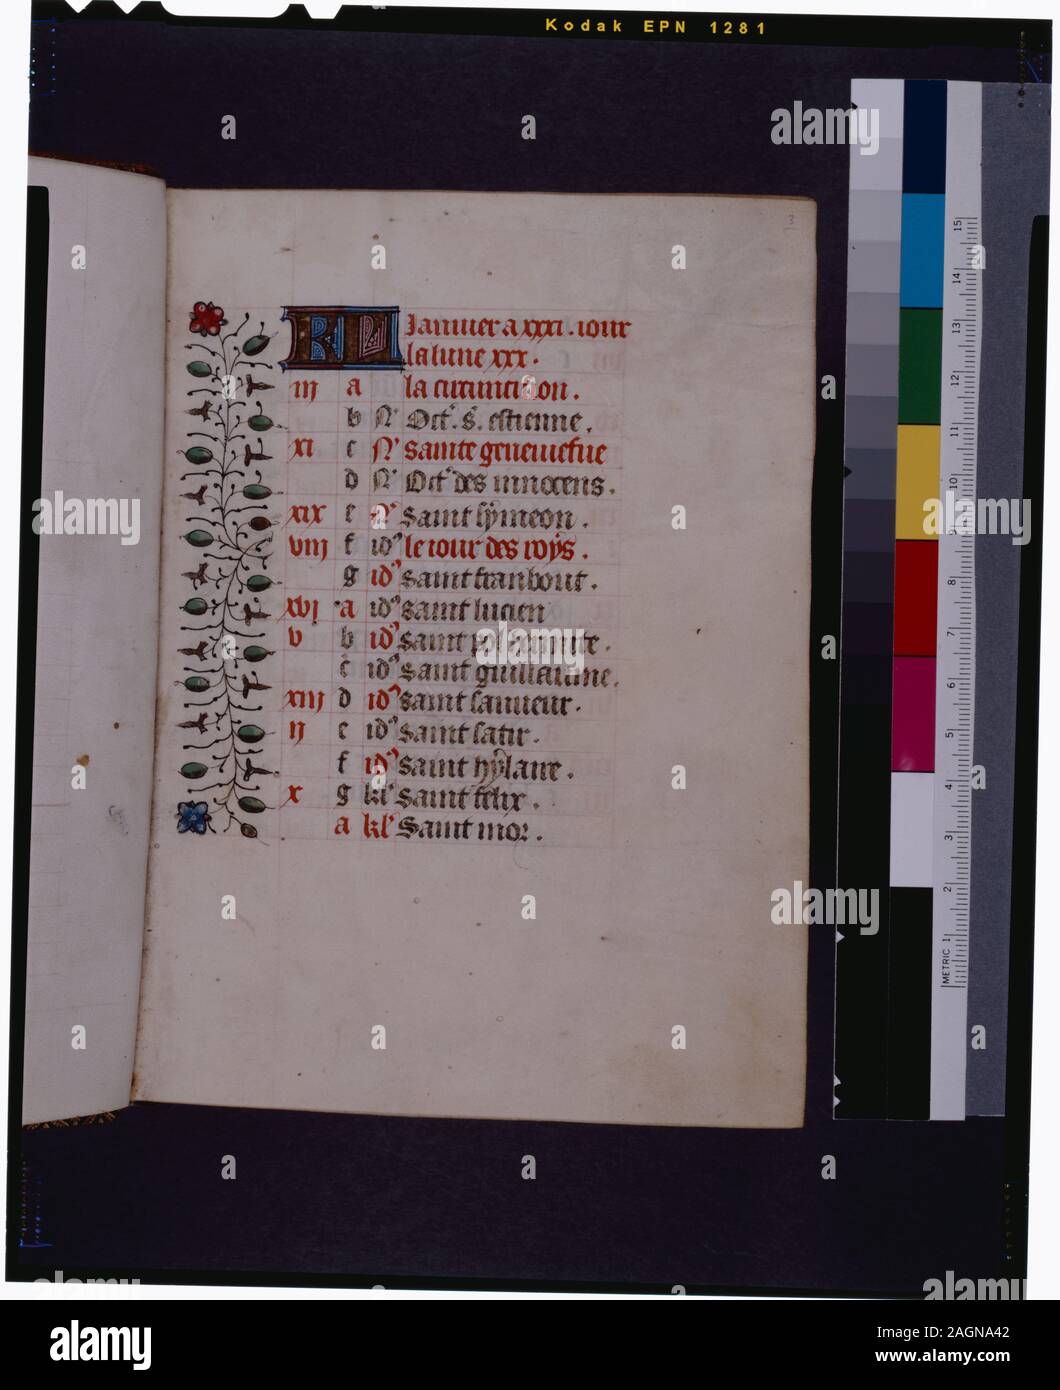 Kodak EPN 1281
3
KL Januier a xxxi . iour
la lune xxx .
iij a la circuncision .
b N' Oct' . s' . estienne .
xi c N' Sainte geneuiefue
d N' Oct' des innocens .
xix e N' Saint symeon .
viij f id' le iour des roys .
g id' Saint franbout .
xvj a id' Saint lucien
v b id' Saint
c id' Saint guillaume .
xiij d id' Saint sauueur .
ij e id' Saint satir .
f id' Saint hylaire .
x g kl' Saint felix .
a kl' Saint mor .
15
14
13
12
11
10
9
8
7
6
5
4
3
2
METRIC 1
alamy
Image ID: 2AGNA42
www.alamy.com